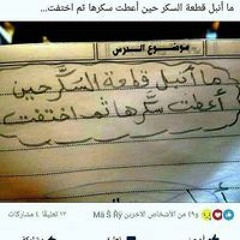 ما أنبل قطعة السكر حين أعطت سكرها ثم اختفت...
موضوع الدرس
ما أنبل قطعة السُكَّر حين
أعطت سكَّرها ثمد اختفت
Mà Š Řÿ و٤٩ من الأشخاص الآخرين
١٢ تعليقًا ٤ مشاركات